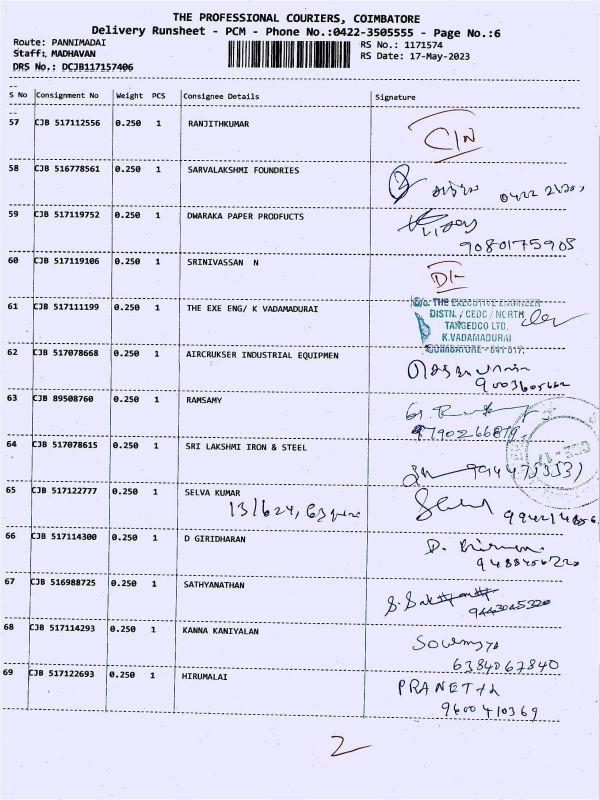 THE PROFESSIONAL COURIERS, COIMBATORE
Delivery Runsheet - PCM - Phone No.:0422-3505555 - Page No.:6
Route: PANNIMADAI
Staff: MADHAVAN
DRS No.: DCJB117157406
RS No.: 1171574
RS Date: 17-May-2023
S No Consignment No Weight PCS Consignee Details Signature
57 CJB 517112556 0.250 1 RANJITHKUMAR
58 CJB 516778561 0.250 1 SARVALAKSHMI FOUNDRIES
59 CJB 517119752 0.250 1 DWARAKA PAPER PRODFUCTS
9080175905
60 CJB 517119106 0.250 1 SRINIVASSAN N
61 CJB 517111199 0.250 1 THE EXE ENG/ K VADAMADURAI
O/o. THE EXECUTIVE ENGINEER
DISTN. / CEDC / NORTH
TANGEDCO LTD.
K.VADAMADURAI
COIMBATORE - 641 017.
62 CJB 517078668 0.250 1 AIRCRUKSER INDUSTRIAL EQUIPMEN
63 CJB 89508760 0.250 1 RAMSAMY
64 CJB 517078615 0.250 1 SRI LAKSHMI IRON & STEEL
65 CJB 517122777 0.250 1 SELVA KUMAR
66 CJB 517114300 0.250 1 D GIRIDHARAN
67 CJB 516988725 0.250 1 SATHYANATHAN
9443045320
68 CJB 517114293 0.250 1 KANNA KANIYALAN
Sowmya
6384067840
69 CJB 517122693 0.250 1 HIRUMALAI
PRANETHA
9600410369
2